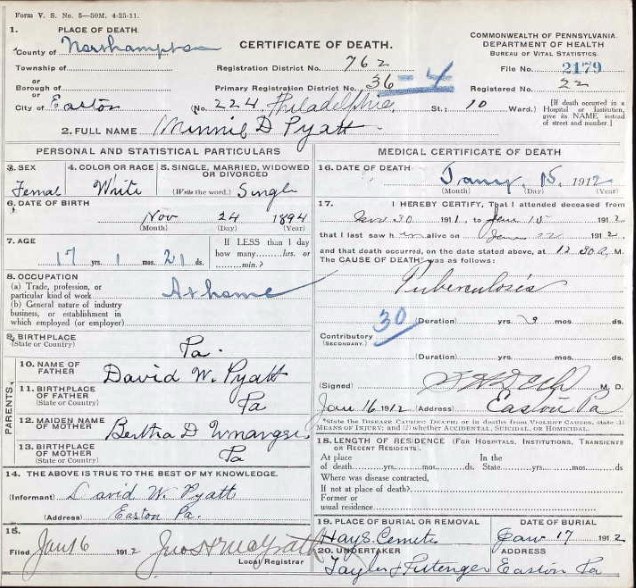 Form V. S. No. 5—50M. 4-25-11.
1. PLACE OF DEATH
County of Northampton
Township of
or
Borough of
or
City of Easton
CERTIFICATE OF DEATH.
Registration District No. 762
Primary Registration District No. 36-4
(No. 224 Philadelphia, St.; 10 Ward.)
COMMONWEALTH OF PENNSYLVANIA
DEPARTMENT OF HEALTH
BUREAU OF VITAL STATISTICS.
File No. 2179
Registered No. 22
[If death occurred in a Hospital or Institution, give its NAME, instead of street and number.]
2. FULL NAME Minnie D Pyatt
PERSONAL AND STATISTICAL PARTICULARS
3. SEX
Femal
4. COLOR OR RACE
Write
5. SINGLE, MARRIED, WIDOWED
OR DIVORCED
(Write the word.) Singl
6. DATE OF BIRTH
Nov 24 1894
(Month) (Day) (Year)
7. AGE
17 yrs. 1 mos. 21 ds.
If LESS than 1 day
how many hrs. or
min.?
8. OCCUPATION
(a) Trade, profession, or
particular kind of work At home
(b) General nature of industry
business, or establishment in
which employed (or employer)
9. BIRTHPLACE
(State or Country) Pa.
PARENTS.
10. NAME OF
FATHER David W. Pyatt
11. BIRTHPLACE
OF FATHER
(State or Country) Pa
12. MAIDEN NAME
OF MOTHER Bertha D
13. BIRTHPLACE
OF MOTHER
(State or Country) Pa
14. THE ABOVE IS TRUE TO THE BEST OF MY KNOWLEDGE.
(Informant) David W. Pyatt
(Address) Easton Pa.
15.
Filed Jan 16 1912
Local Registrar
MEDICAL CERTIFICATE OF DEATH
16. DATE OF DEATH
Jany 15, 1912
(Month) (Day) (Year)
17. I HEREBY CERTIFY, That I attended deceased from
Nov 30 1911, to Jan 15 1912
that I last saw h alive on 1912
and that death occurred, on the date stated above, at 12 30 M.
The CAUSE OF DEATH was as follows:
Tuberculosis
30
(Duration) yrs. mos. ds.
Contributory
(SECONDARY.)
(Duration) yrs. mos. ds.
(Signed) M. D.
Jan 16 1912 (Address) Easton Pa
*State the DISEASE CAUSING DEATH; or in deaths from VIOLENT CAUSES, state (1)
MEANS OF INJURY; and (2) whether ACCIDENTAL, SUICIDAL, or HOMICIDAL.
18. LENGTH OF RESIDENCE (FOR HOSPITALS, INSTITUTIONS, TRANSIENTS
OR RECENT RESIDENTS).
At place In the
of death yrs. mos. ds. State yrs. mos. ds.
Where was disease contracted,
if not at place of death?
Former or
usual residence
19. PLACE OF BURIAL OR REMOVAL
Hays Cemete
DATE OF BURIAL
Jan 17 1912
20. UNDERTAKER
Taylor &
ADDRESS
Easton Pa